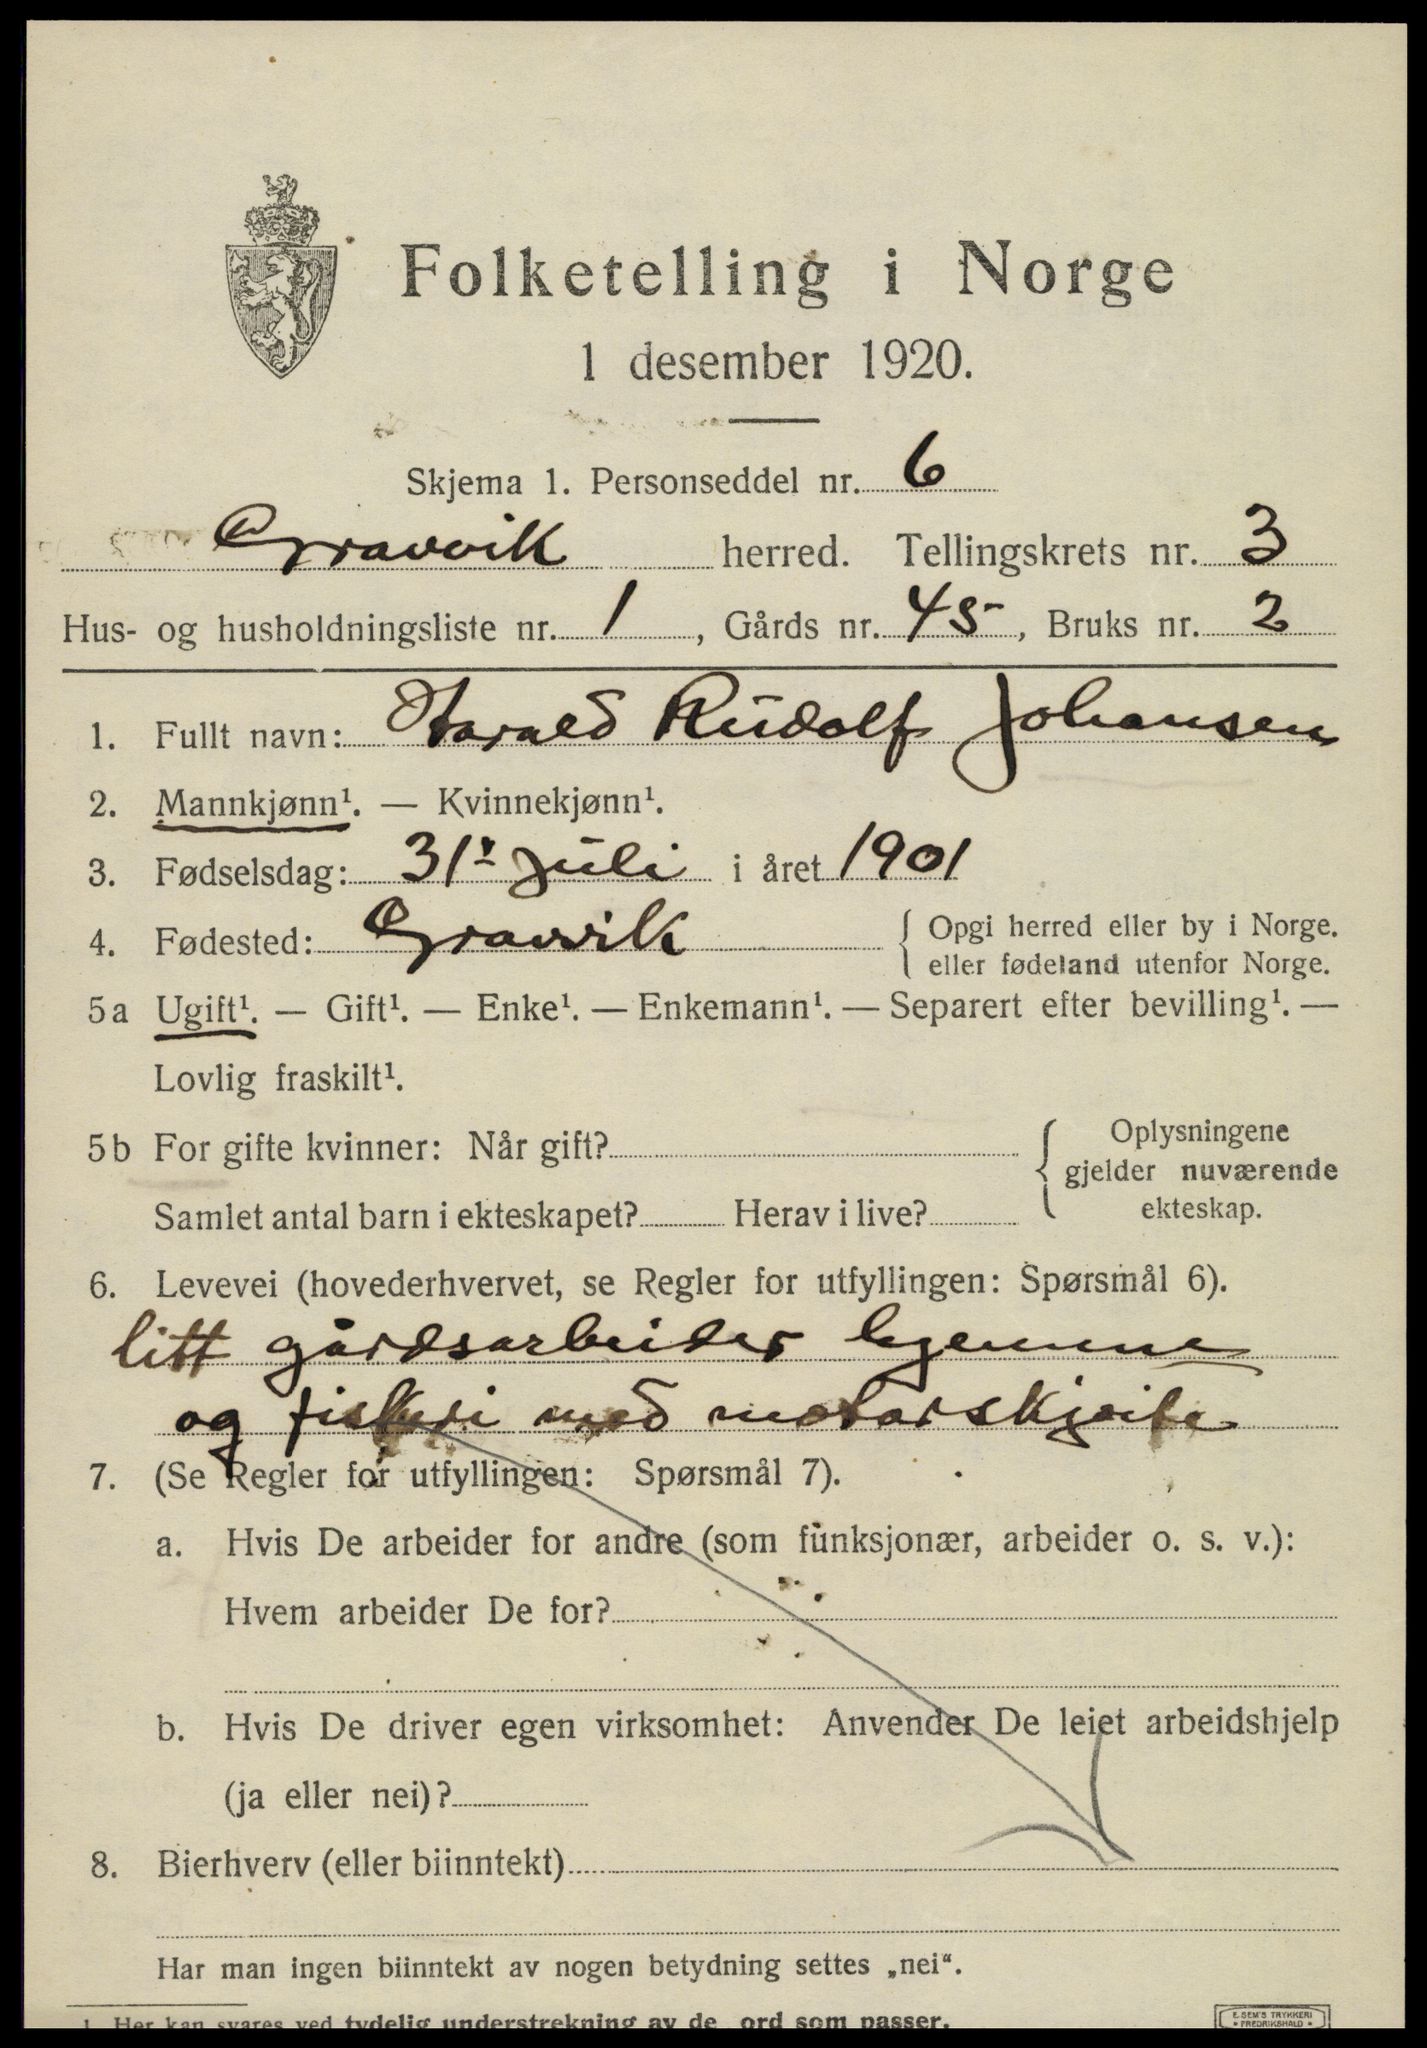 Folketelling i Norge
1 desember 1920.
Skjema 1. Personseddel nr. 6
Gravvik herred. Tellingskrets nr. 3
Hus- og husholdningsliste nr. 1, Gårds nr. 45, Bruks nr. 2
1. Fullt navn: Harald Rudolf Johansen
2. Mannkjønn¹. — Kvinnekjønn¹.
3. Fødselsdag: 31 Juli i året 1901
4. Fødested: Gravvik { Opgi herred eller by i Norge.
eller fødeland utenfor Norge.
5a Ugift¹. — Gift¹. — Enke¹. — Enkemann¹. — Separert efter bevilling¹. —
Lovlig fraskilt¹.
5b For gifte kvinner: Når gift? { Oplysningene
gjelder nuværende
ekteskap.
Samlet antal barn i ekteskapet? Herav i live?
6. Levevei (hovederhvervet, se Regler for utfyllingen: Spørsmål 6).
litt gårdsarbeider hjemme
og fiskeri med motorskjøite
7. (Se Regler for utfyllingen: Spørsmål 7).
a. Hvis De arbeider for andre (som funksjonær, arbeider o. s. v.):
Hvem arbeider De for?
b. Hvis De driver egen virksomhet: Anvender De leiet arbeidshjelp
(ja eller nei)?
8. Bierhverv (eller biinntekt)
Har man ingen biinntekt av nogen betydning settes „nei“.
1. Her kan svares ved tydelig understrekning av de ord som passer.
E. SEM'S TRYKKERI
• FREDRIKSHALD •